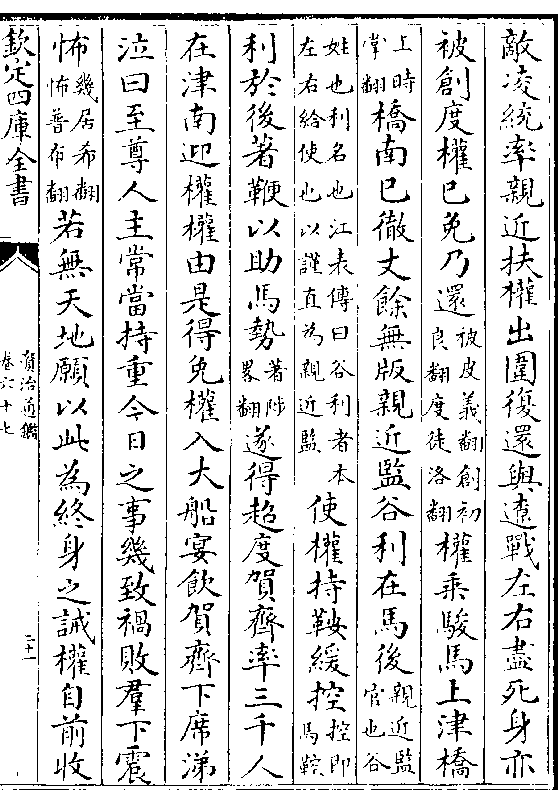 敵凌統率親近扶權出圍復還與遼戰左右盡死身亦
被創度權已免乃還被皮義翻創初良翻度徒洛翻權乘駿馬上津橋
上時掌翻橋南已徹丈餘無版親近監谷利在馬後親近監官也谷
姓也利名也江表傳曰谷利者本左右給使也以謹直為親近監使權持鞍緩控控即馬鞚
利於後著鞭以助馬勢著陟畧翻遂得超度賀齊率三千人
在津南迎權權由是得免權入大船宴飲賀齊下席涕
泣曰至尊人主常當持重今日之事幾致禍敗羣下震
怖幾居希翻怖普布翻若無天地願以此為終身之誡權自前收
欽定四庫全書
資治通鑑
卷六十七
二十一